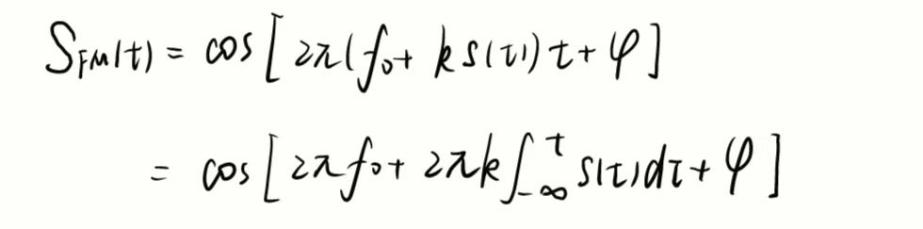 S_{FM}(t) = cos[2π(f₀ + k s(τ))t + φ]
= cos[2πf₀ + 2πk∫_{-∞}^{t} s(τ)dτ + φ]